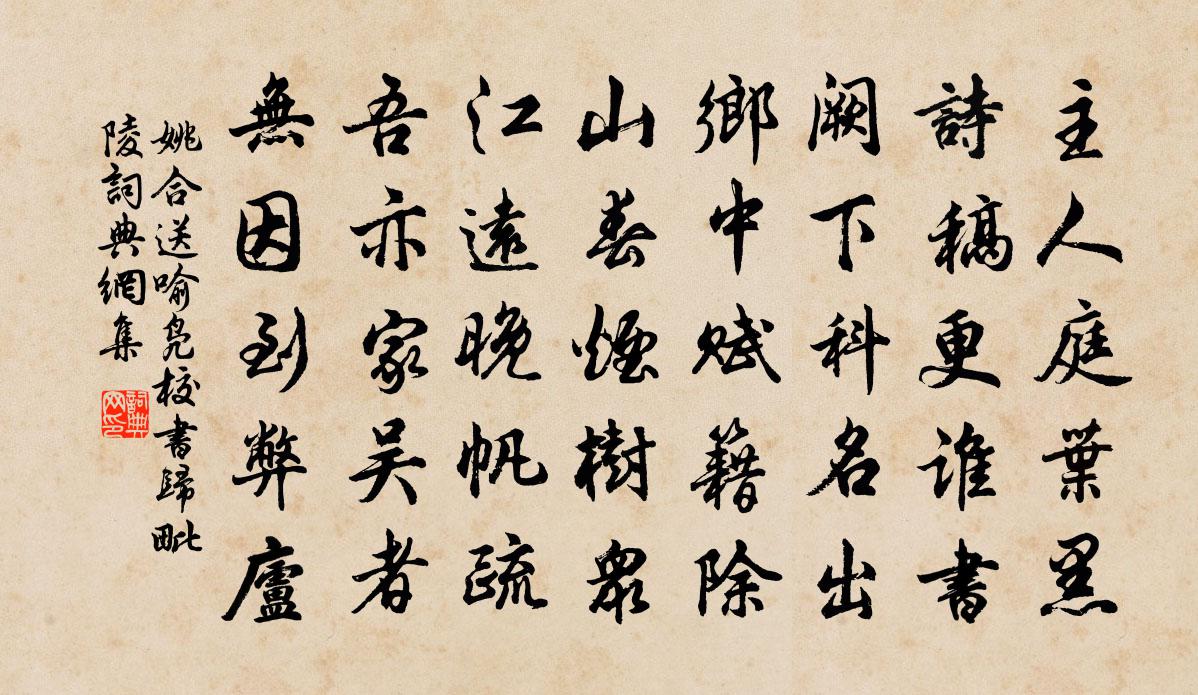 主人庭葉黑
詩稿更誰書
闕下科名出
鄉中賦籍除
山春煙樹眾
江遠晚帆疏
吾亦家吳者
無因到弊廬
姚合送喻凫校書歸毗
陵詞典網集
詞典
网印